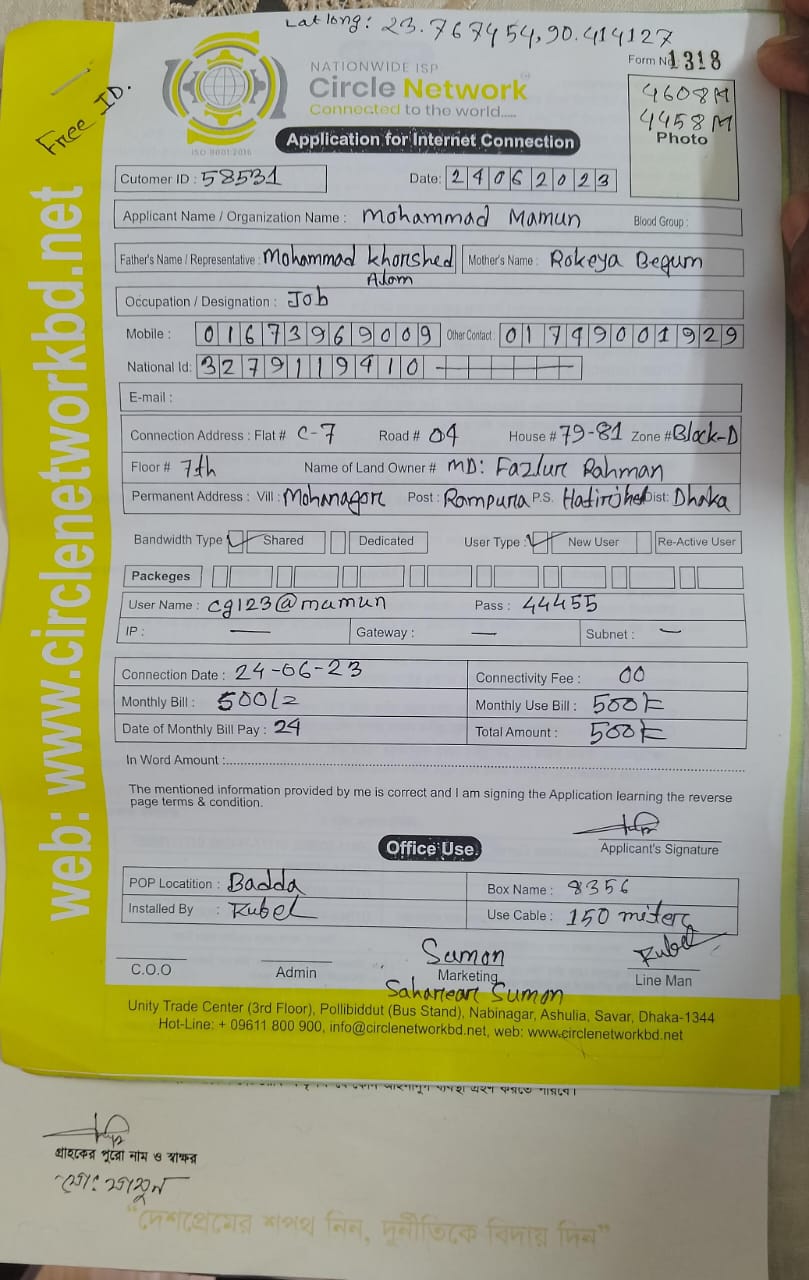 Lat long: 23.767454,90.414127
Form No 1318
Free ID.
NATIONWIDE ISP
Circle Network
Connected to the world.....
ISO 9001:2015
4608M
4458M
Photo
Application for Internet Connection
Cutomer ID : 58531 Date: 24062023
Applicant Name / Organization Name : Mohammad Mamun Blood Group :
Father's Name / Representative : Mohammad Khorshed Alom Mother's Name : Rokeya Begum
Occupation / Designation : Job
Mobile : 01673969009 Other Contact : 01749001929
National Id: 3279119410
E-mail :
Connection Address : Flat # C-7 Road # 04 House # 79-81 Zone # Block-D
Floor # 7th Name of Land Owner # MD: Fazlur Rahman
Permanent Address : Vill : Mohanagor Post : Rampura P.S. Hatirjhel Dist: Dhaka
Bandwidth Type Shared Dedicated User Type : New User Re-Active User
Packeges
User Name : cg123@mamun Pass : 44455
IP : — Gateway : — Subnet : —
Connection Date : 24-06-23 Connectivity Fee : 00
Monthly Bill : 500/= Monthly Use Bill : 500/=
Date of Monthly Bill Pay : 24 Total Amount : 500/=
In Word Amount :
The mentioned information provided by me is correct and I am signing the Application learning the reverse
page terms & condition.
Applicant's Signature
Office Use
POP Locatition : Badda Box Name : 8356
Installed By : Rubel Use Cable : 150 miters
Sumon Rubel
C.O.O Admin Marketing Line Man
Sahariear Sumon
Unity Trade Center (3rd Floor), Pollibiddut (Bus Stand), Nabinagar, Ashulia, Savar, Dhaka-1344
Hot-Line: + 09611 800 900, info@circlenetworkbd.net, web: www.circlenetworkbd.net
web: www.circlenetworkbd.net
গ্রাহকের পুরো নাম ও স্বাক্ষর
মোঃ মামুন
“দেশপ্রেমের শপথ নিন, দুর্নীতিকে বিদায় দিন”